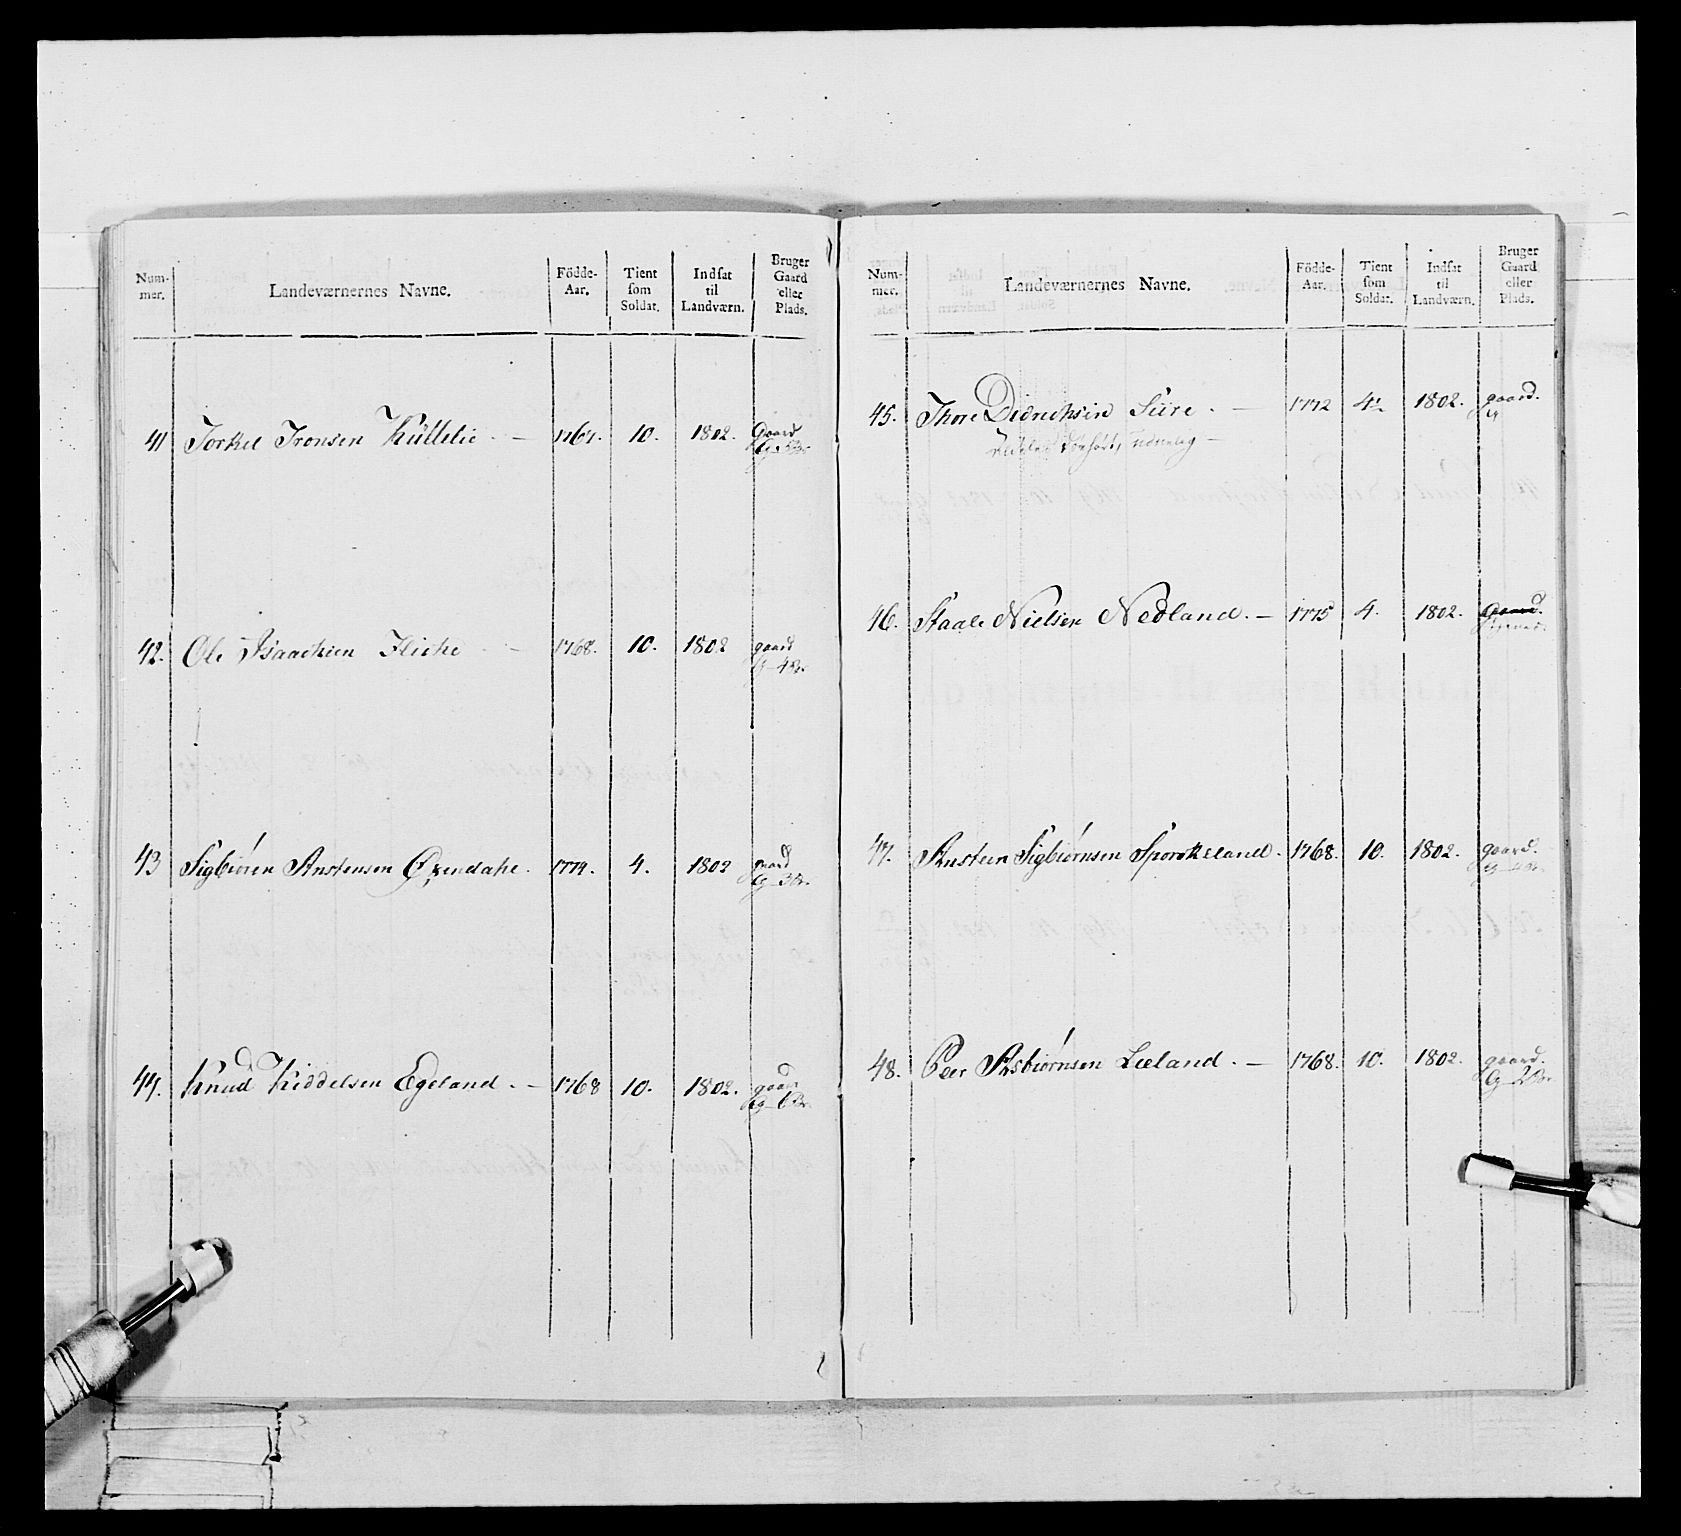 Num-
mer.
Landeværnernes Navne.
Födde-
Aar.
Tient
ſom
Soldat.
Indſat
til
Landværn.
Bruger
Gaard
eller
Plads.
41 Torkel Tronsen Küllelie - 1767. 10. 1802. Gaard
42. Ole Isaachsen Fliche - 1768. 10. 1802 gaard
43 Sigbiören Anstensen Øxendahl. 1774. 4. 1802 gaard
44. Knud Kiddelsen Egeland. - 1768 10. 1802. gaard
Num-
mer.
Landeværnernes Navne.
Födde-
Aar.
Tient
ſom
Soldat.
Indſat
til
Landværn.
Bruger
Gaard
eller
Plads.
45. Thore Didrichsen Siire. - 1772 4. 1802. gaard.
46. Staale Nielsen Nedland. - 1775 4. 1802. gaard.
47. Ansten Sigbiörnsen Sporkeland. 1768. 10. 1802. gaard.
48. Peer Asbiörnsen Lœland. - 1768. 10. 1802. gaard.